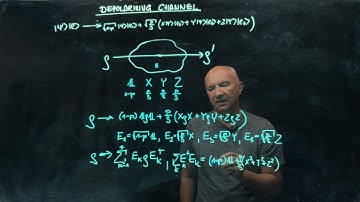 DEPOLARIZING CHANNEL
|ψ⟩|e⟩ → √1-p |ψ⟩|e⟩ + √p/3 (X|ψ⟩|e⟩ + Y|ψ⟩|e⟩ + Z|ψ⟩|e⟩)
ρ ρ'
E
𝟙 X Y Z
1-p p/3 p/3 p/3
ρ → (1-p) 𝟙ρ𝟙 + p/3 (XρX + YρY + ZρZ)
E₁ = √1-p 𝟙, E₂ = √p/3 X, E₃ = √p/3 Y, E₄ = √p/3 Z
ρ → Σ Eₖ ρ Eₖ† , Σ Eₖ†Eₖ = (1-p) 𝟙 + p/3 (X²+Y²+Z²)